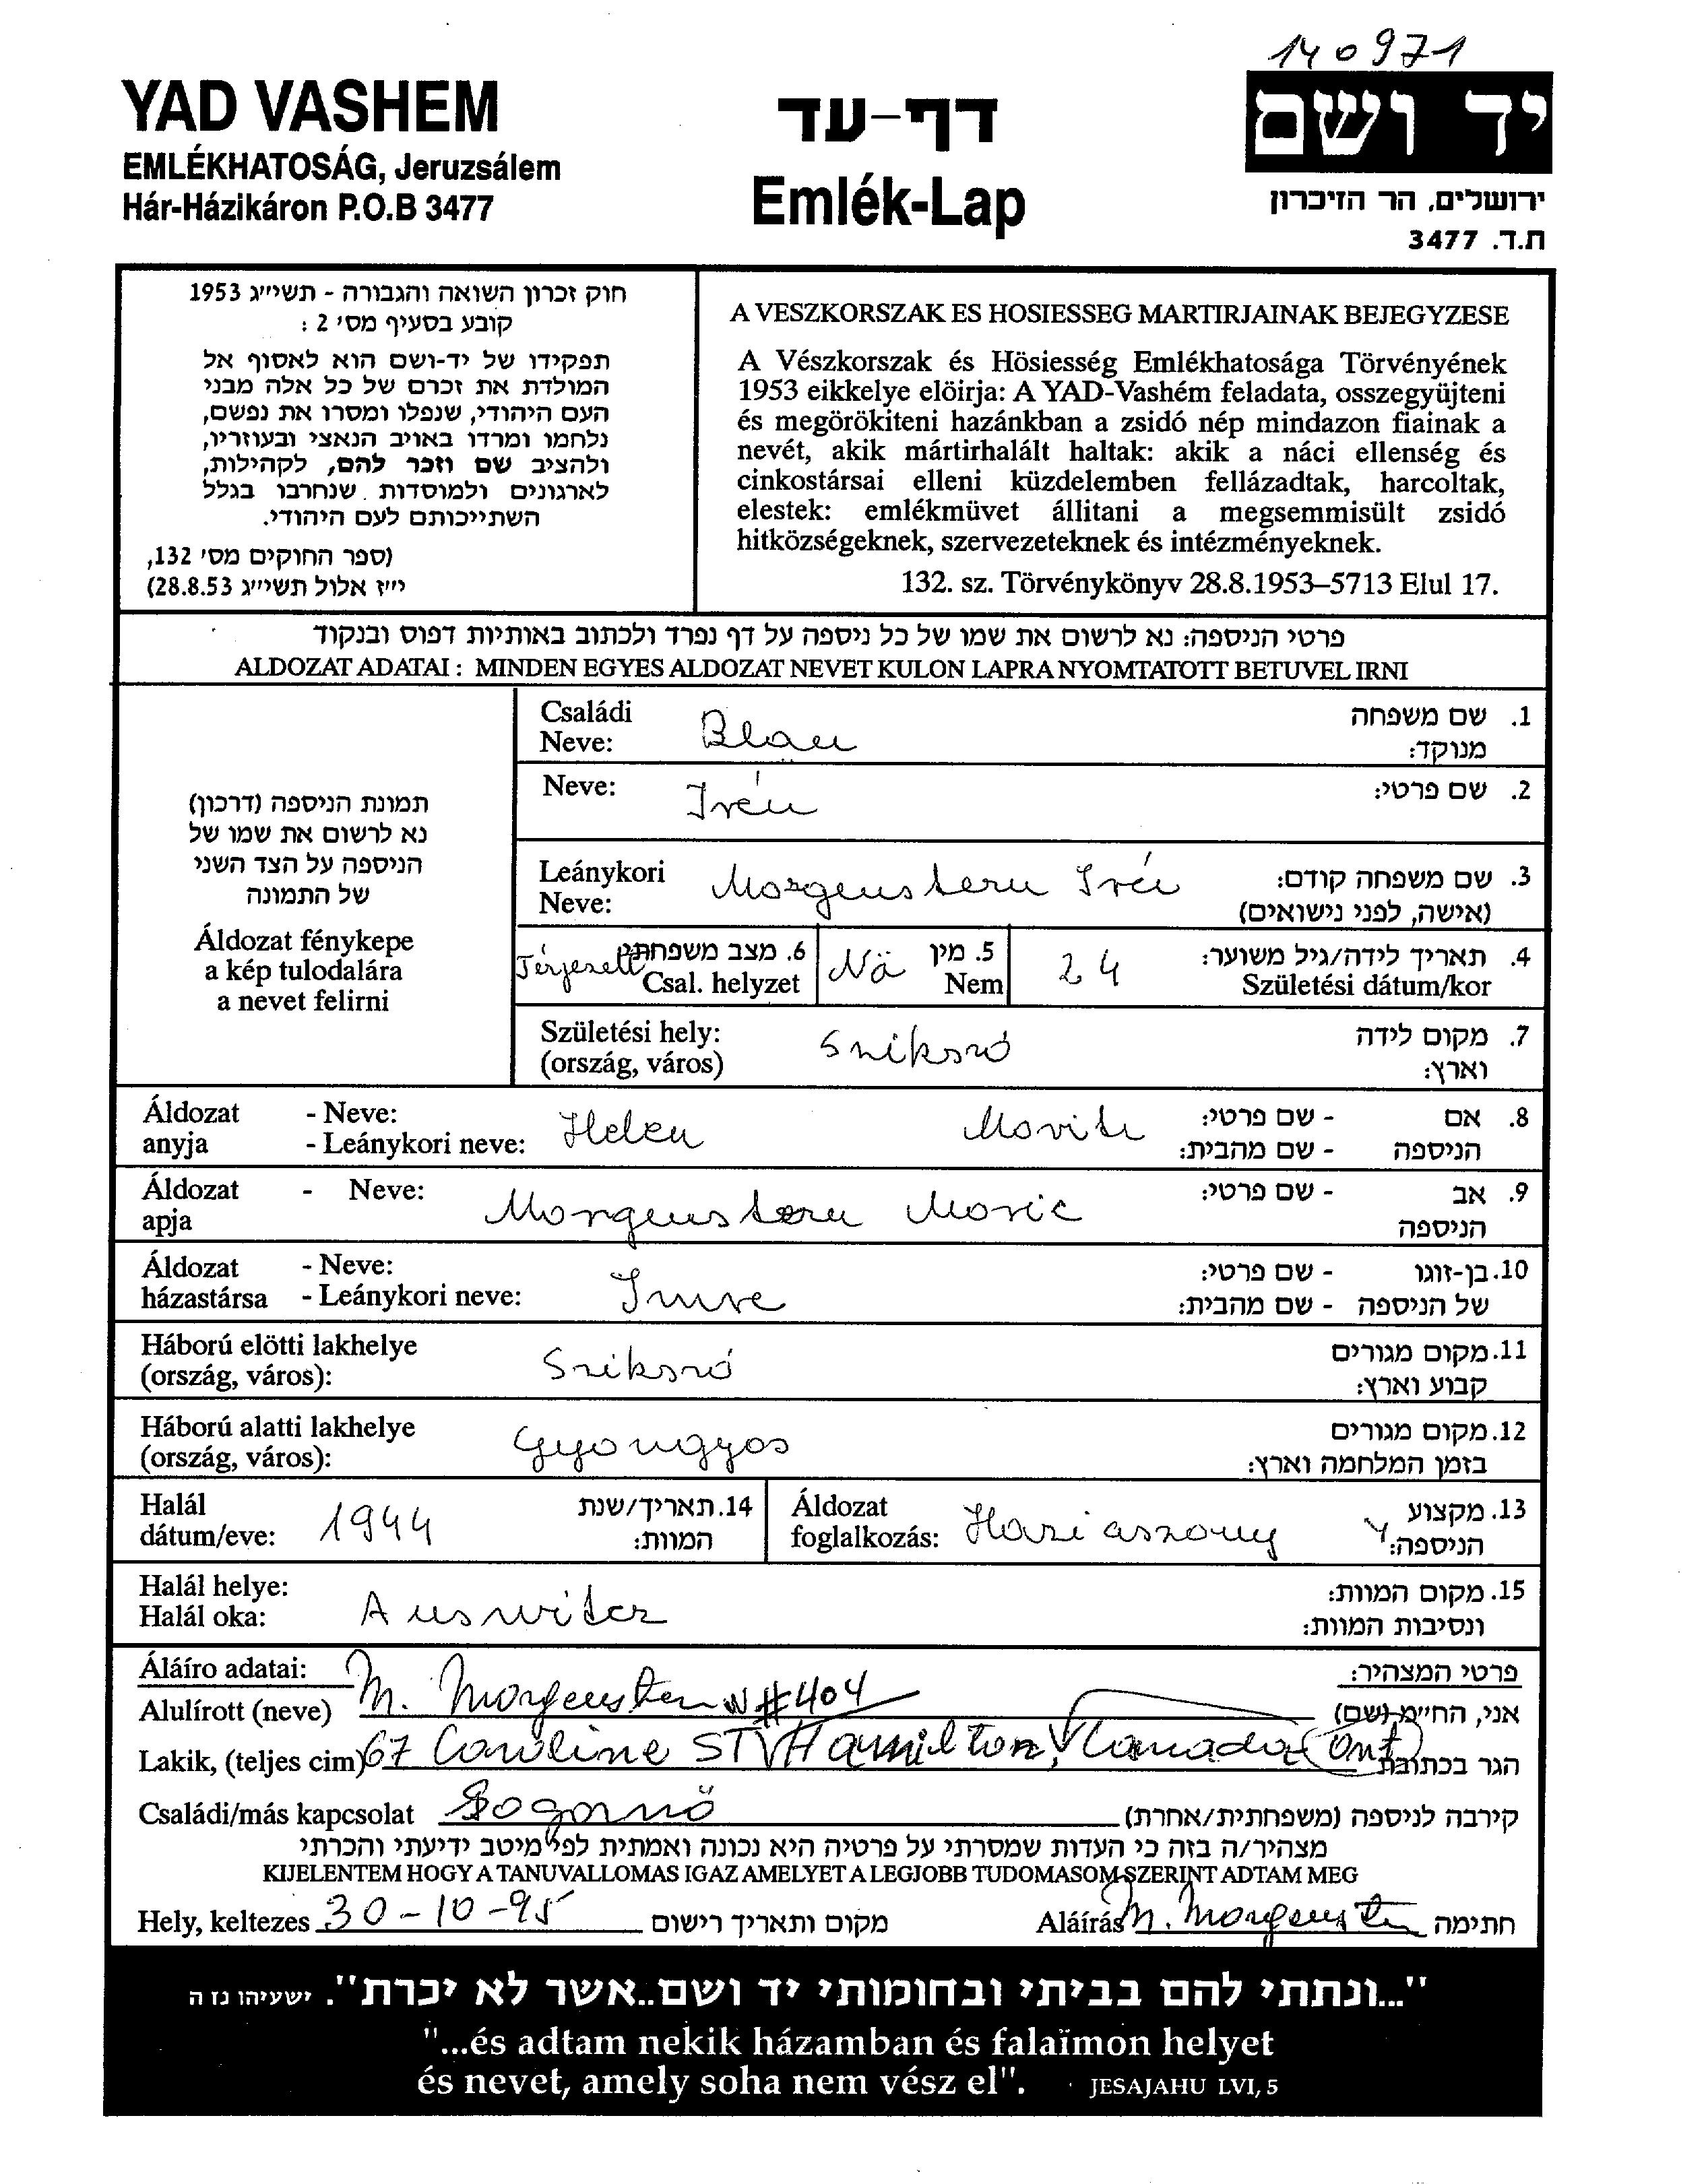 140971
YAD VASHEM
EMLÉKHATOSÁG, Jeruzsálem
Hár-Házikáron P.O.B 3477
דף-עד
Emlék-Lap
יד ושם
ירושלים, הר הזיכרון
ת.ד. 3477
חוק זכרון השואה והגבורה - תשי״ג 1953
קובע בסעיף מס׳ 2 :
תפקידו של יד-ושם הוא לאסוף אל
המולדת את זכרם של כל אלה מבני
העם היהודי, שנפלו ומסרו את נפשם,
נלחמו ומרדו באויב הנאצי ובעוזריו,
ולהציב שם וזכר להם, לקהילות,
לארגונים ולמוסדות שנחרבו בגלל
השתייכותם לעם היהודי.
(ספר החוקים מס׳ 132,
י״ז אלול תשי״ג 28.8.53)
A VESZKORSZAK ES HOSIESSEG MARTIRJAINAK BEJEGYZESE
A Vészkorszak és Hösiesség Emlékhatosága Törvényének
1953 eikkelye elöirja: A YAD-Vashém feladata, osszegyüjteni
és megörökiteni hazánkban a zsidó nép mindazon fiainak a
nevét, akik mártirhalált haltak: akik a náci ellenség és
cinkostársai elleni küzdelemben fellázadtak, harcoltak,
elestek: emlékmüvet állitani a megsemmisült zsidó
hitközségeknek, szervezeteknek és intézményeknek.
132. sz. Törvénykönyv 28.8.1953–5713 Elul 17.
פרטי הניספה: נא לרשום את שמו של כל ניספה על דף נפרד ולכתוב באותיות דפוס ובנקוד
ALDOZAT ADATAI : MINDEN EGYES ALDOZAT NEVET KULON LAPRA NYOMTATOTT BETUVEL IRNI
תמונת הניספה (דרכון)
נא לרשום את שמו של
הניספה על הצד השני
של התמונה
Áldozat fénykepe
a kép tulodalára
a nevet felirni
Családi Neve: Blau 1. שם משפחה מנוקד:
Neve: Irén 2. שם פרטי:
Leánykori Neve: Morgenstern Irén 3. שם משפחה קודם: (אישה, לפני נישואים)
Férjezett 6. מצב משפחתי Csal. helyzet Nö 5. מין Nem 24 4. תאריך לידה/גיל משוער: Születési dátum/kor
Születési hely: (ország, város) Szikszó 7. מקום לידה וארץ:
Áldozat anyja - Neve: - Leánykori neve: Helen Movitz 8. אם הניספה - שם פרטי: - שם מהבית:
Áldozat apja - Neve: Morgenstern Moric 9. אב הניספה - שם פרטי:
Áldozat házastársa - Neve: - Leánykori neve: Imre 10. בן-זוגו של הניספה - שם פרטי: - שם מהבית:
Háború elötti lakhelye (ország, város): Szikszó 11. מקום מגורים קבוע וארץ:
Háború alatti lakhelye (ország, város): Gyongyos 12. מקום מגורים בזמן המלחמה וארץ:
Halál dátum/eve: 1944 14. תאריך/שנת המוות: Áldozat foglalkozás: Haziaszony 13. מקצוע הניספה:
Halál helye: Halál oka: Auswitcz 15. מקום המוות: ונסיבות המוות:
Áláíro adatai: פרטי המצהיר:
Alulírott (neve) M. Morgenstern #404 אני, החי״מ (שם)
Lakik, (teljes cim) 67 Caroline ST Hamilton, Canada Ont הגר בכתובת
Családi/más kapcsolat Sogornö קירבה לניספה (משפחתית/אחרת)
מצהיר/ה בזה כי העדות שמסרתי על פרטיה היא נכונה ואמתית לפי מיטב ידיעתי והכרתי
KIJELENTEM HOGY A TANUVALLOMAS IGAZ AMELYET A LEGJOBB TUDOMASOM SZERINT ADTAM MEG
Hely, keltezes 30-10-95 מקום ותאריך רישום Aláírás M. Morgenstern חתימה
"...ונתתי להם בביתי ובחומותי יד ושם..אשר לא יכרת". ישעיהו נז ה
"...és adtam nekik házamban és falaïmon helyet
és nevet, amely soha nem vész el". JESAJAHU LVI, 5